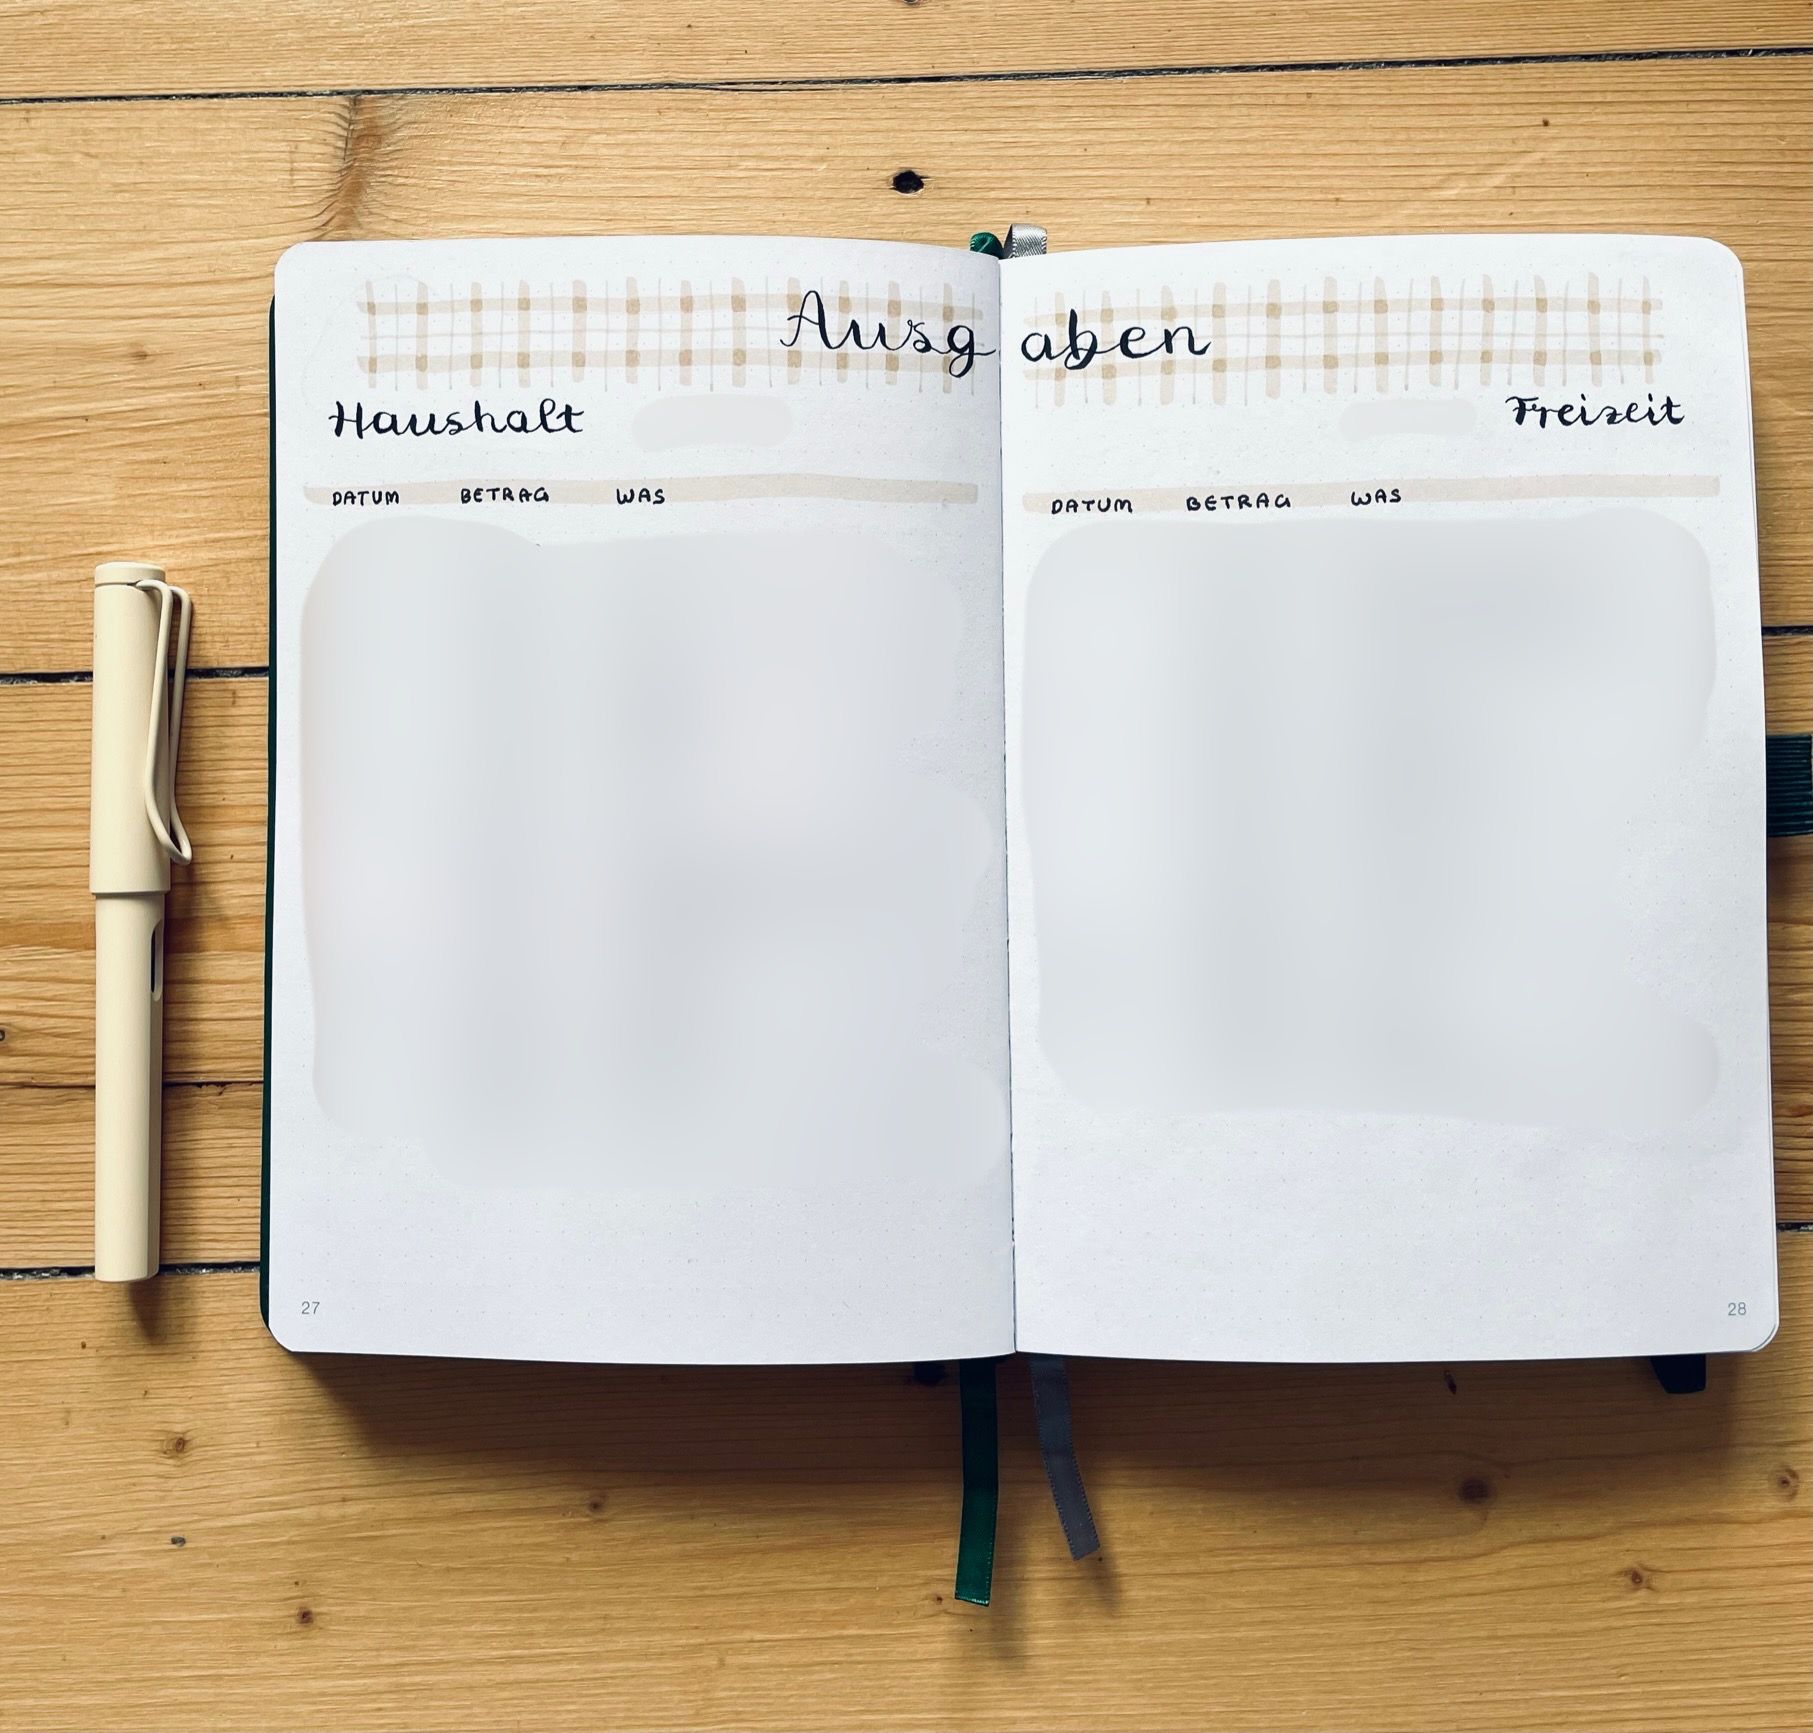 Ausgaben
Haushalt
DATUM BETRAG WAS
27
Freizeit
DATUM BETRAG WAS
28